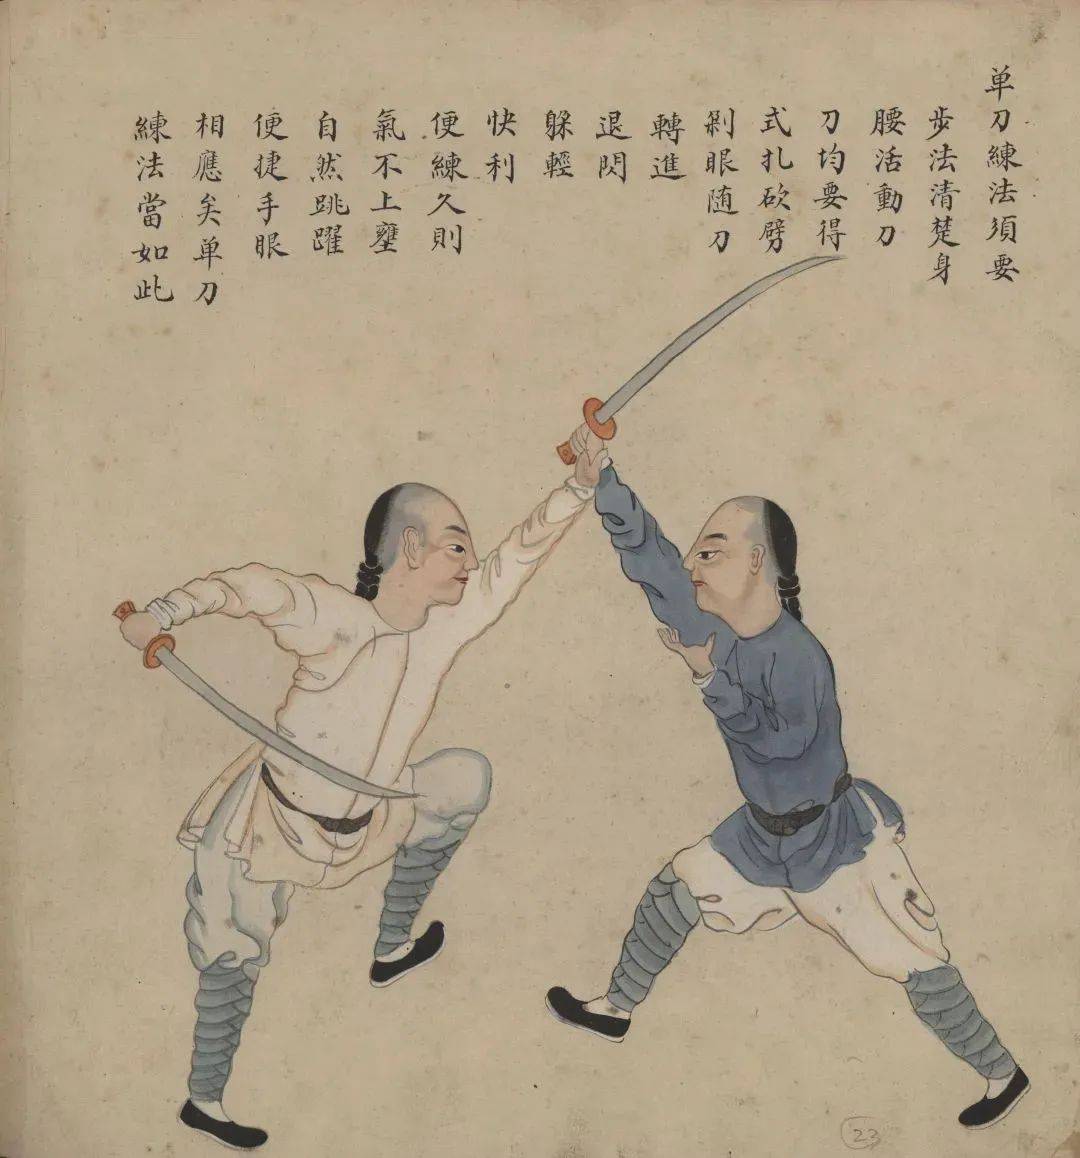 单刀練法須要
步法清楚身
腰活動刀
刀均要得
式扎砍劈
剁眼随刀
轉進
退閃
躲輕
快利
便練久則
氣不上壅
自然跳躍
便捷手眼
相應矣单刀
練法當如此
23